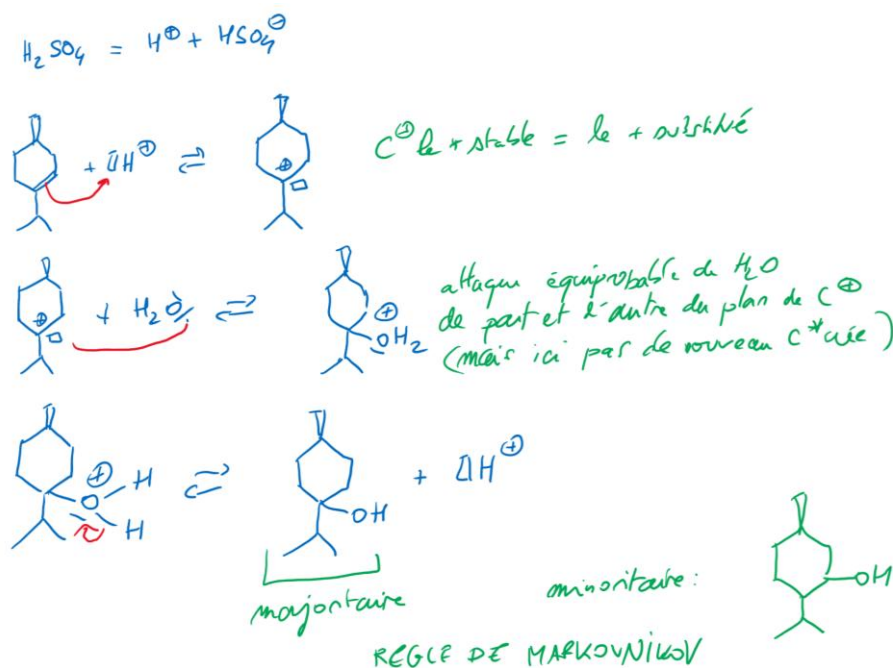 H₂SO₄ = H⊕ + HSO₄⊖
+ □H⊕ ⇌ ⊕ □
C⊕ le + stable = le + substitué
⊕ □ + H₂O ⇌ ⊕ OH₂
attaque équiprobable de H₂O
de part et d'autre du plan de C⊕
(mais ici pas de nouveau C* créé)
⊕ O H H ⇌ OH + □H⊕
majoritaire
minoritaire : OH
REGLE DE MARKOVNIKOV